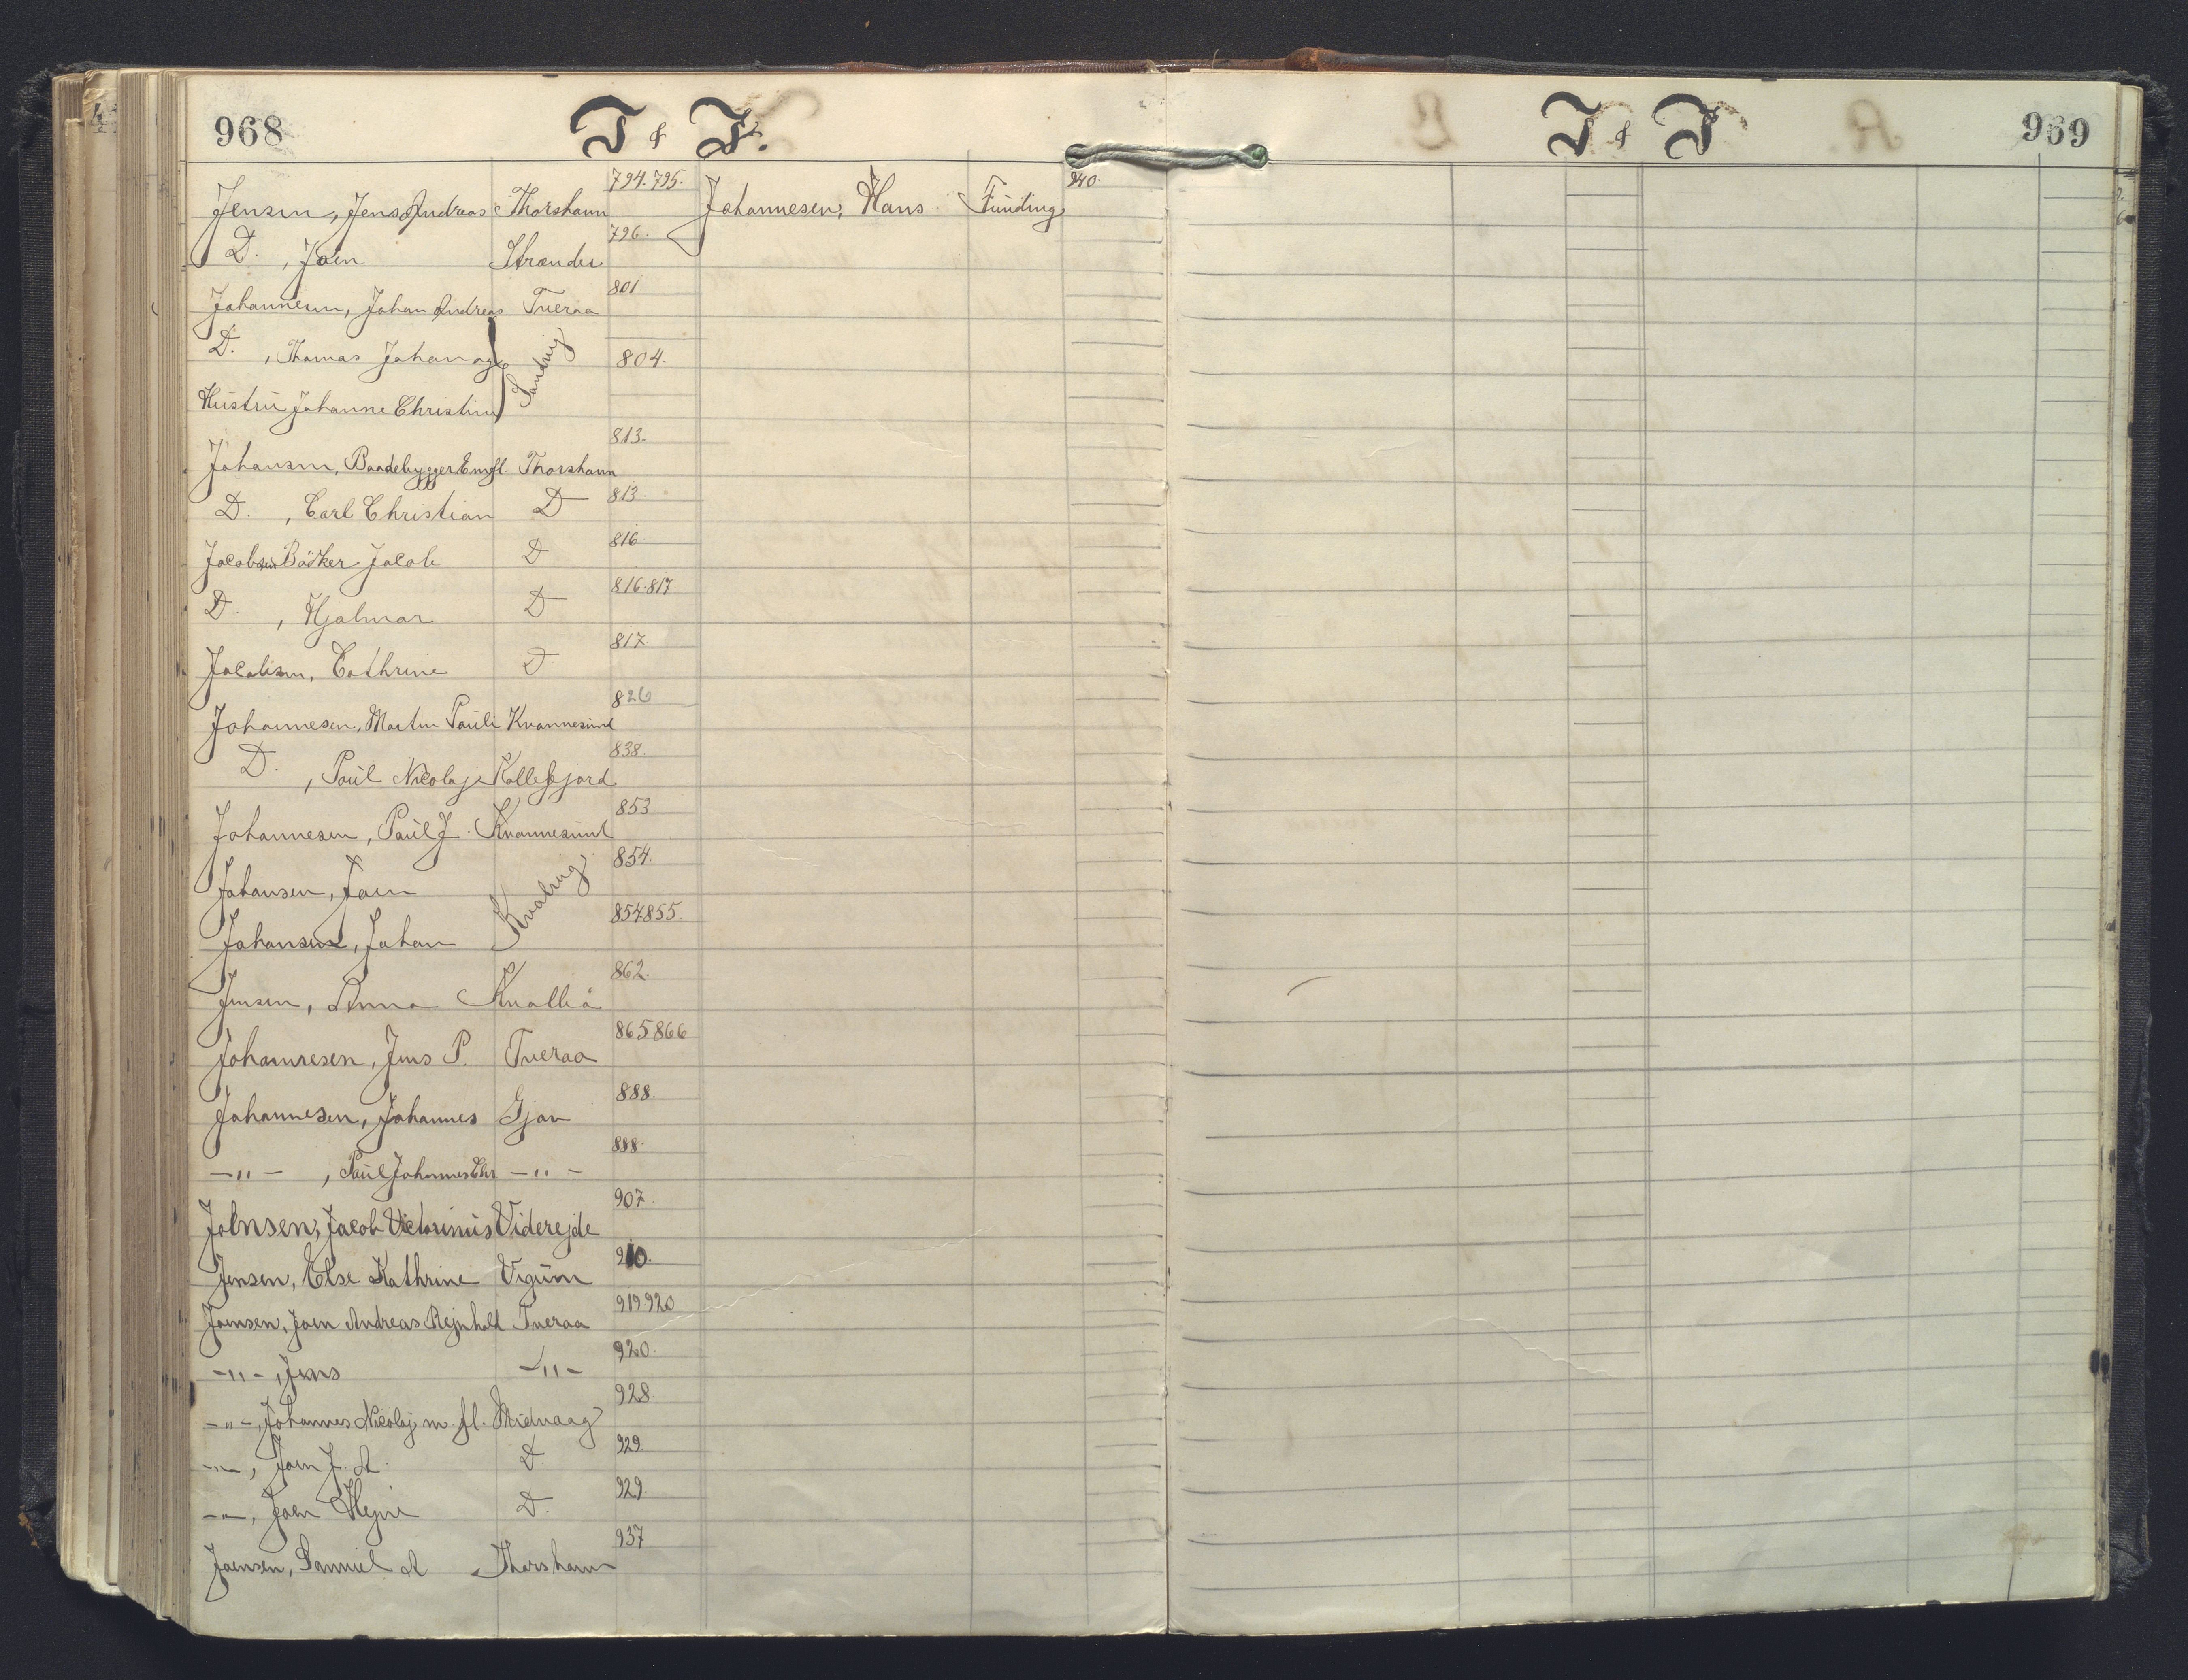 968
I & J.
Jensen, Jens Andreas Thorshavn 794. 795.
D. , Joen Strænder 796.
Johannesen, Johan Andreas Tveraa 801
D. , Thomas Johan og Sandvig 804.
Hustru Johanne Christine
Johansen, Baadebygger Em fl. Thorshavn 813.
D. , Carl Christian D 813.
Jacobsen Böcker Jacob D 816.
D. , Hjalmar D 816.817
Jacobsen, Cathrine D 817
Johannesen, Martin Pauli Kvannesund 826
D. , Paul Nicolaj Kollefjord 838.
Johannesen, Paul J. Kvannesund 853
Johansen, Joen Kvalvig 854.
Johansen, Johan 854 855.
Jensen, Anna Kvalbø 862.
Johannesen, Jens P. Tveraa 865 866
Johannesen, Johannes Gjov 888.
—"— , Paul Johannes Chr —"— 888.
Johnsen, Jacob Victorinus Viderejde 907
Jensen, Else Kathrine Vigum 910.
Joensen, Joen Andreas Rejnhold Tveraa 919 920
—"— , Jens —"— 920.
—"—, Johannes Nicolaj m. fl. Midvaag 928
—"—, Joen J. A. D. 929
—"—, Joen Hejni D. 929.
Joensen, Samuel A Thorshavn 937
Johannesen, Hans Funding 940.
I & J
969